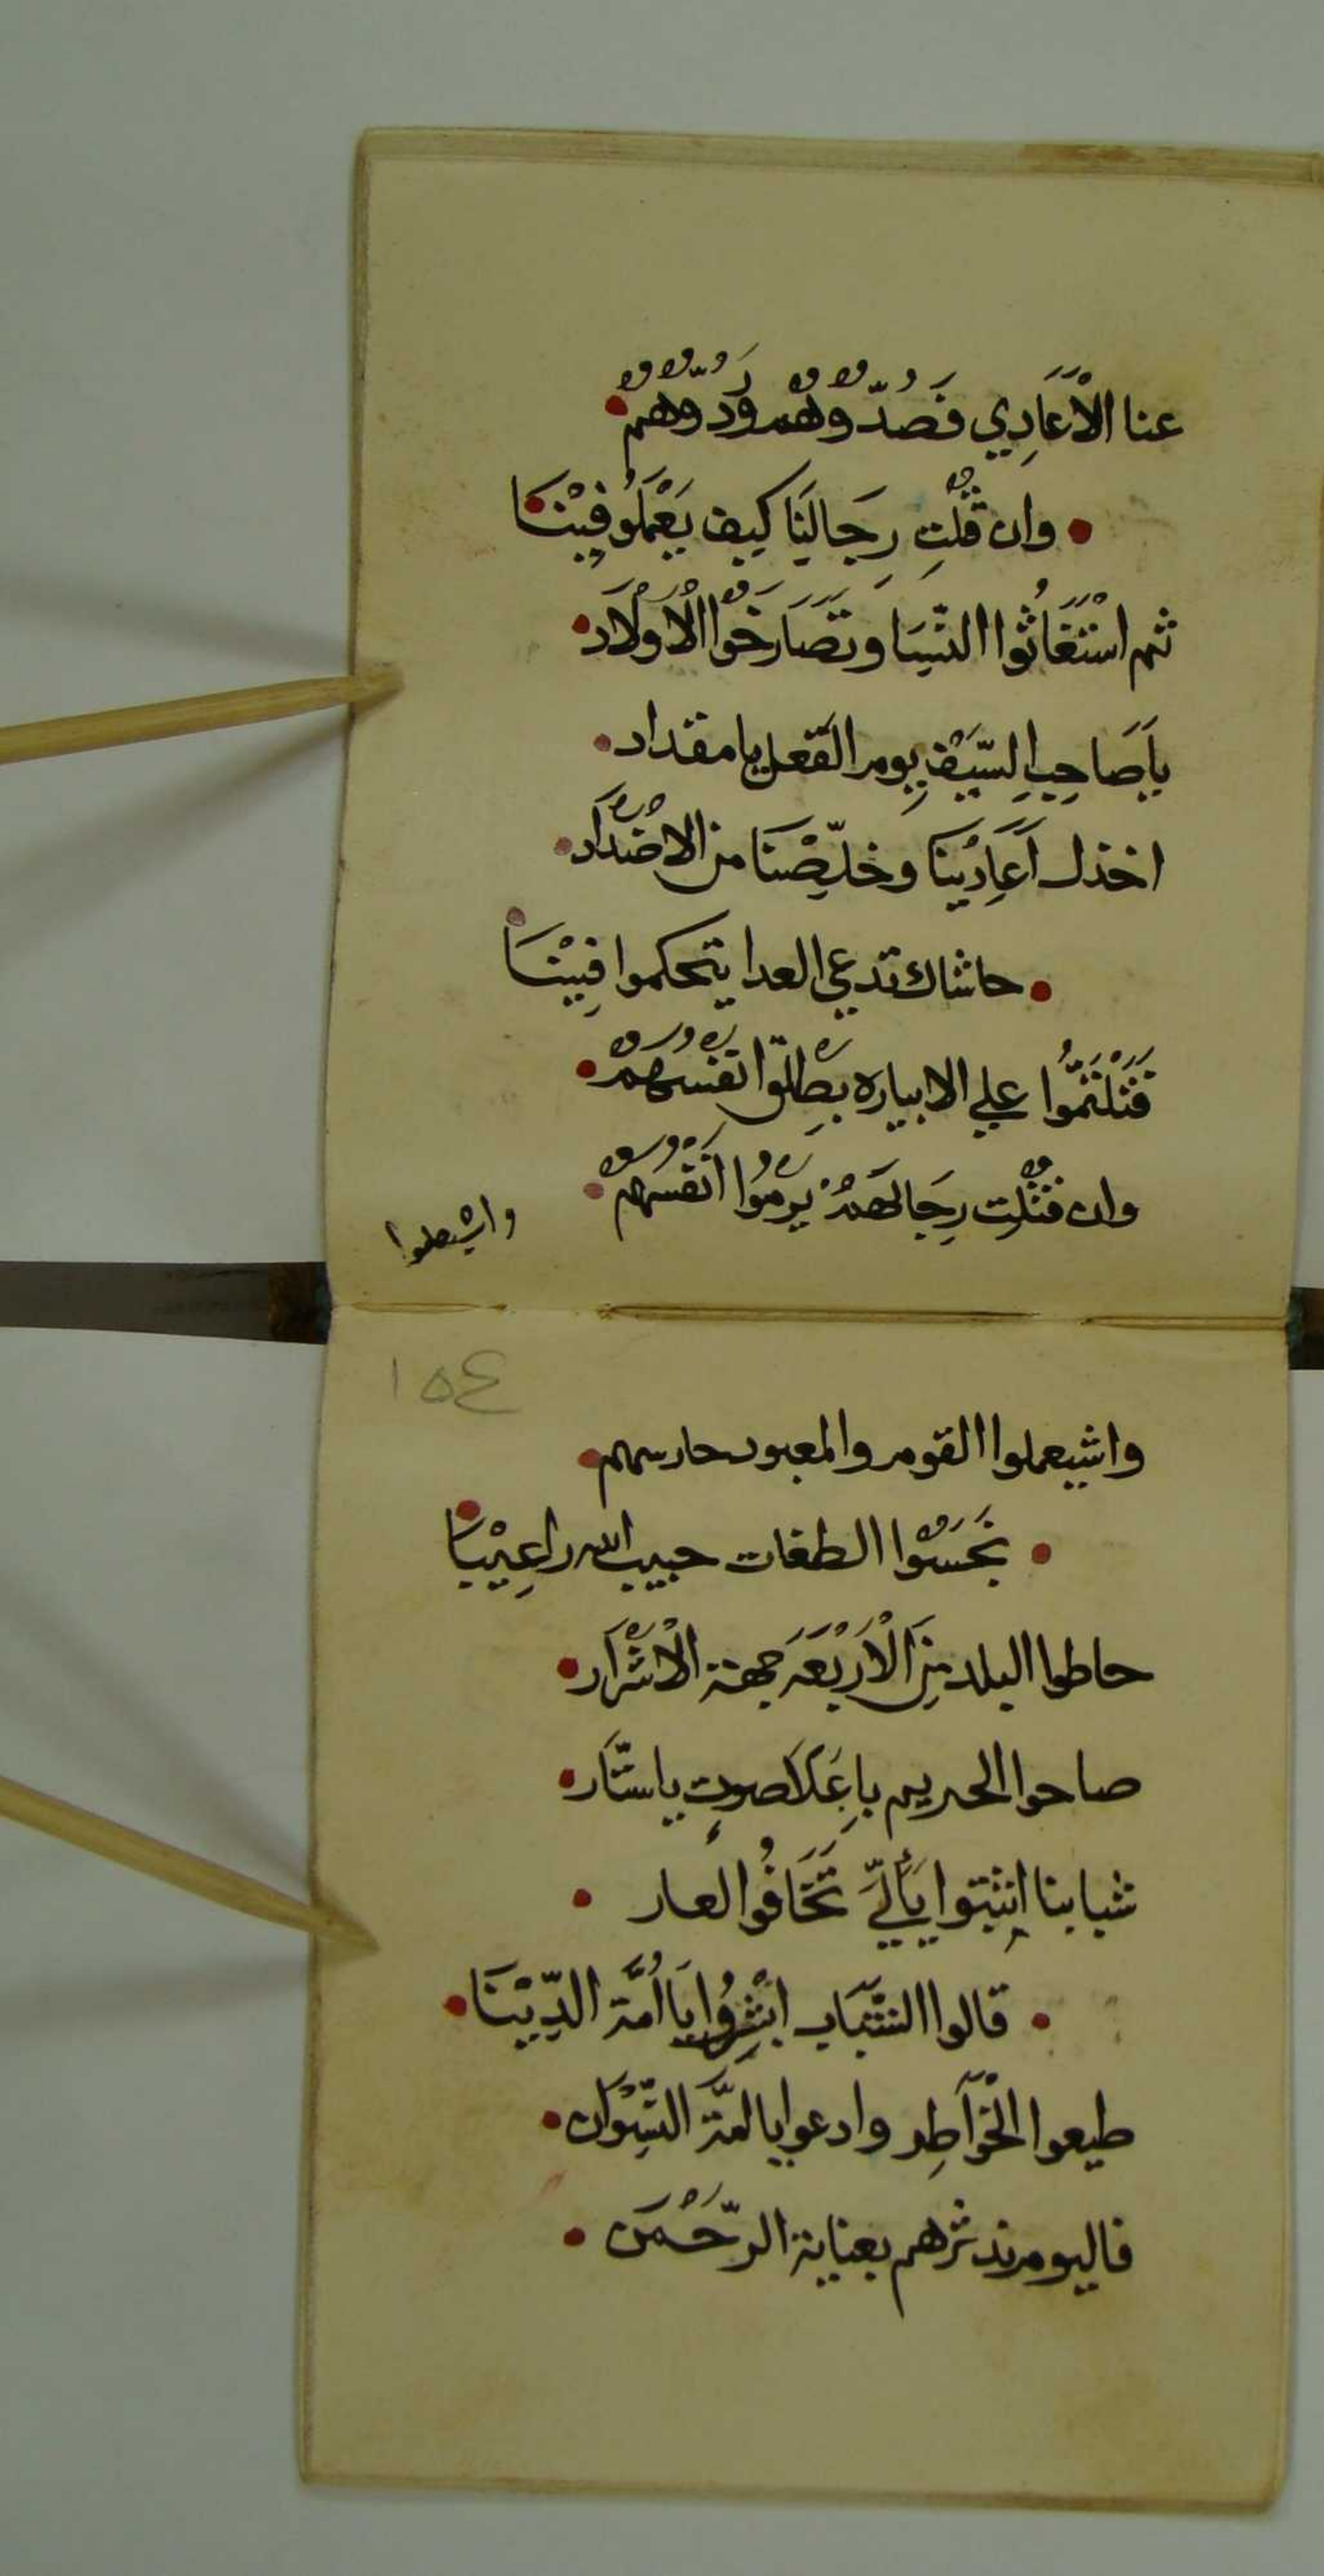 عنا الْأَعَادِي فَصُدّوهُم وَرُدّوهُمْ
وان قُتْلتِ رِجَالِنَا كيف يَعْمَلُو فِيْنَا
ثم اسْتَغَاثُوا النّسَا وتَصَارَخُوا الْاوْلَاد
يَاصَاحِبِ السّيْف يوم الفعل يا مقداد
اخذل أَعَادِيْنَا وخلّصْنَا من الاضْدَاد
حاشاك تدعي العدا يتحكموا فِيْنَا
علي الابياره بِطلقوا انفسهم
وان قتْلت رِجَالهم يرموا انفسهم
واشيعملوا
١٥٤
واشيعملوا القوم والمعبود حارسهم
نَجَسُوا الطغات حبيب الله راعِيْنَا
حاطوا البلد مِنَ الْأَرْبَعَه جهة الْاشْرَار
صاحوا الحريم باعَلَا صوت ياستّار
شبابنا اثبتوا يَالِّي تَخَافُوا العار
قالوا الشّبَاب ابشرُوا يَا اُمَّة الدِّيْنَا
طيعوا الخْوَاطِر وادعوا يالمّة النّسْوَان
فاليوم ندثرهم بعناية الرّحْمَن